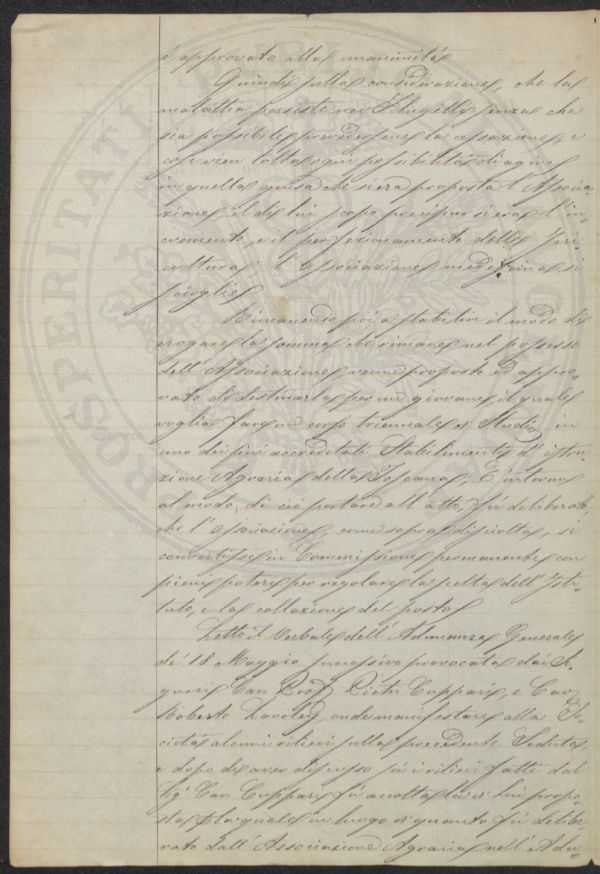 è approvato alla unanimità
Quindi sulla considerazione, che la
malattia persiste nei Filugelli senza che
sia possibile prevedersene la cessazione, e
così vien tolta ogni possibilità di agire
in quella guisa che si era proposta l'Associa-
zione, il di lui scopo precipuo si era l'in-
cremento, e il perfezionamento della Seri-
cultura, l'Associazione medesima si
scioglie
Rimanendo poi a stabilire il modo di
erogare la somma che rimane nel possesso
dell'Associazione venne proposto ed appro-
vato di destinarla per un giovane il quale
voglia fare un corso triennale di Studi in
uno dei più accreditati Stabilimenti d'istru-
zione Agraria della Toscana; E intorno
al modo di ciò portare all'atto, fù deliberato
che l'Associazione, come sopra disciolta, si
convertisse in Commissione permanente con
pieni poteri per regolare la scelta dell'Isti-
tuto, e la collazione del posto
Letto il Verbale dell'Adunanza Generale
de' 18 Maggio successivo provocata dai Si-
gnori Cav. Dott. Pietro Cuppari, e Cav.
Roberto Lawley, onde manifestare alla So-
cietà alcuni rilievi sulla precedente Seduta,
e dopo di aver discusso sù i rilievi fatti dal
Sig.r Cav. Cuppari fù accolta la di Lui propo-
sta la quale in luogo di quanto fù delibe-
rato dall'Associazione Agraria nell'Adu-